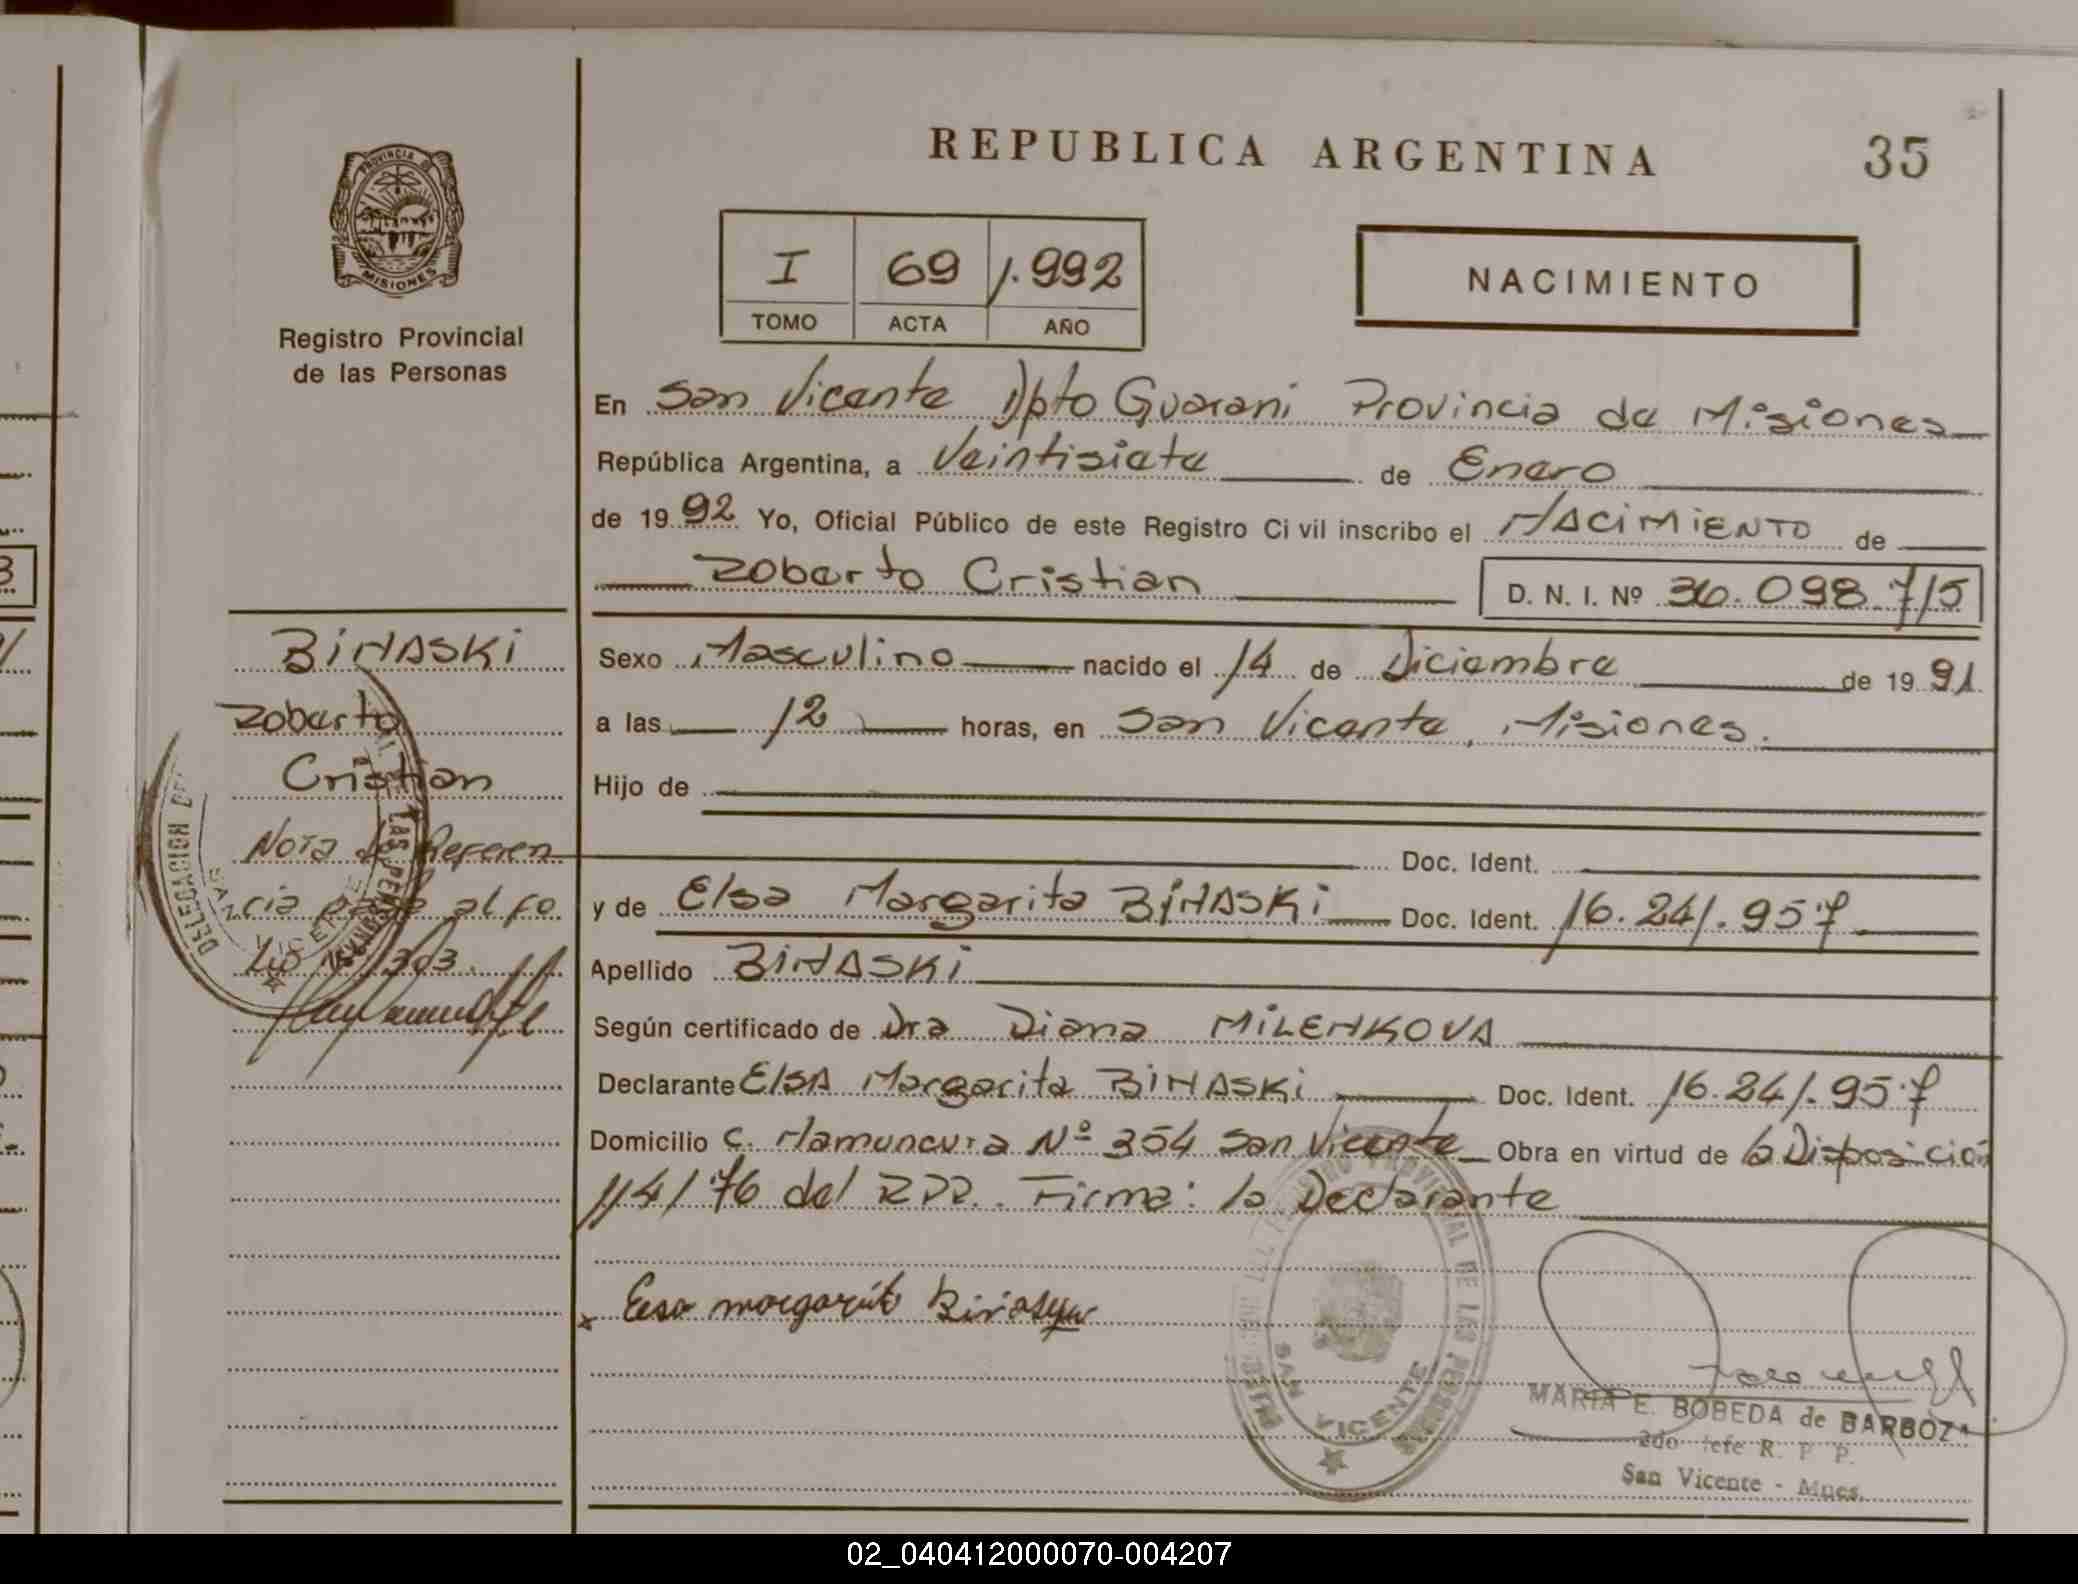 REPUBLICA ARGENTINA
35
PROVINCIA DE
MISIONES
Registro Provincial
de las Personas
I 69 1.992
TOMO ACTA AÑO
NACIMIENTO
En San Vicente Dpto Guarani Provincia de Misiones
República Argentina, a Veintisiete de Enero
de 1992 Yo, Oficial Público de este Registro Civil inscribo el NACIMIENTO de
Roberto Cristian D. N. I. Nº 36.098.715
Sexo Masculino nacido el 14 de Diciembre de 1991
a las 12 horas, en San Vicente, Misiones.
Hijo de
Doc. Ident.
y de Elsa Margarita BINASKi Doc. Ident. 16.241.957
Apellido BINASKi
Según certificado de Dra Diana MiLENKOVA
Declarante ElSA Margarita BINASKi Doc. Ident. 16.241.957
Domicilio C. Namuncura Nº 354 San Vicente Obra en virtud de la Disposición
114/76 del RPP. Firma: la Declarante
x Elsa margarita
BiNASKi
Roberto
Cristian
Nota de Referen
cia pase al fo
lio Nº 303.
DELEGACION DE
LAS PERSONAS
SAN VICENTE
SAN VICENTE
MARIA E. BOBEDA de BARBOZA
2do Jefe R. P. P.
San Vicente - Mnes.
02_040412000070-004207